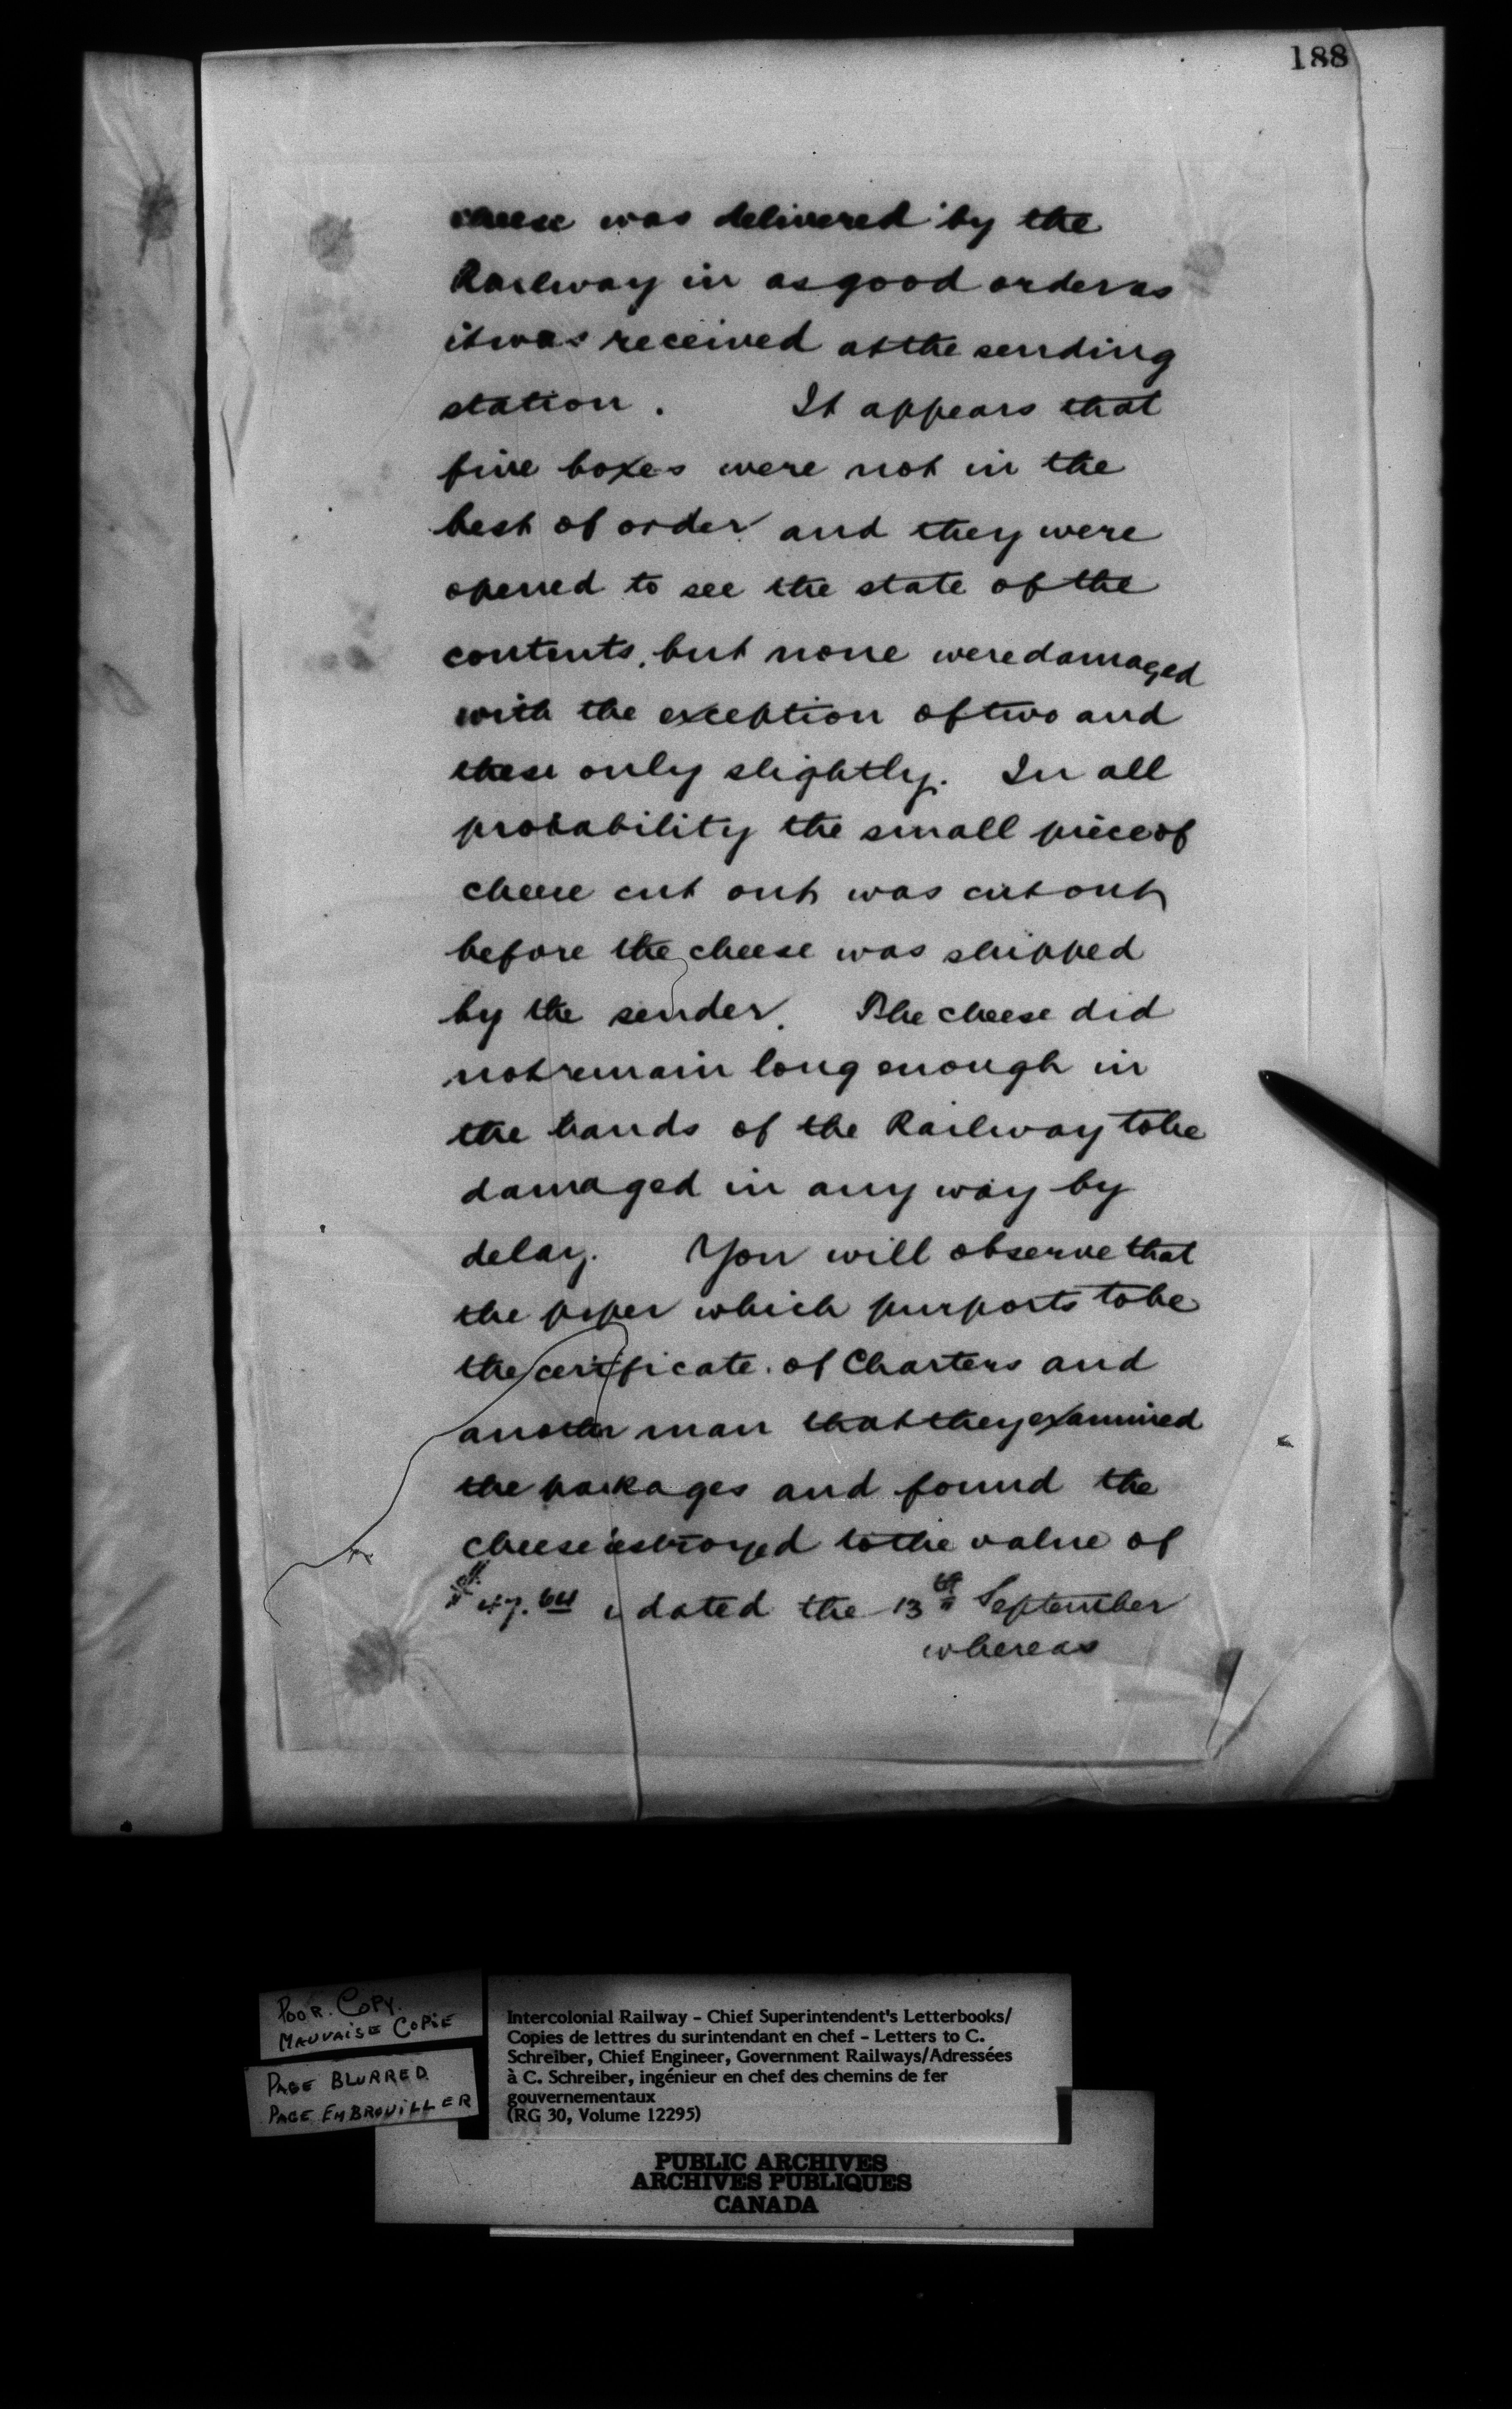 188
cheese was delivered by the
Railway in as good order as
it was received at the sending
station. It appears that
five boxes were not in the
best of order and they were
opened to see the state of the
contents, but none were damaged
with the exception of two and
these only slightly. In all
probability the small piece of
cheese cut out was cut out
before the cheese was shipped
by the sender. The cheese did
not remain long enough in
the hands of the Railway to be
damaged in any way by
delay. You will observe that
the paper which purports to be
the certificate of Charters and
another man that they examined
the packages and found the
cheese destroyed to the value of
$47.64 is dated the 13th September
whereas
POOR. COPY.
MAUVAISE COPIE
PAGE BLURRED
PAGE EMBROUILLER
Intercolonial Railway - Chief Superintendent's Letterbooks/
Copies de lettres du surintendant en chef - Letters to C.
Schreiber, Chief Engineer, Government Railways/Adressées
à C. Schreiber, ingénieur en chef des chemins de fer
gouvernementaux
(RG 30, Volume 12295)
PUBLIC ARCHIVES
ARCHIVES PUBLIQUES
CANADA